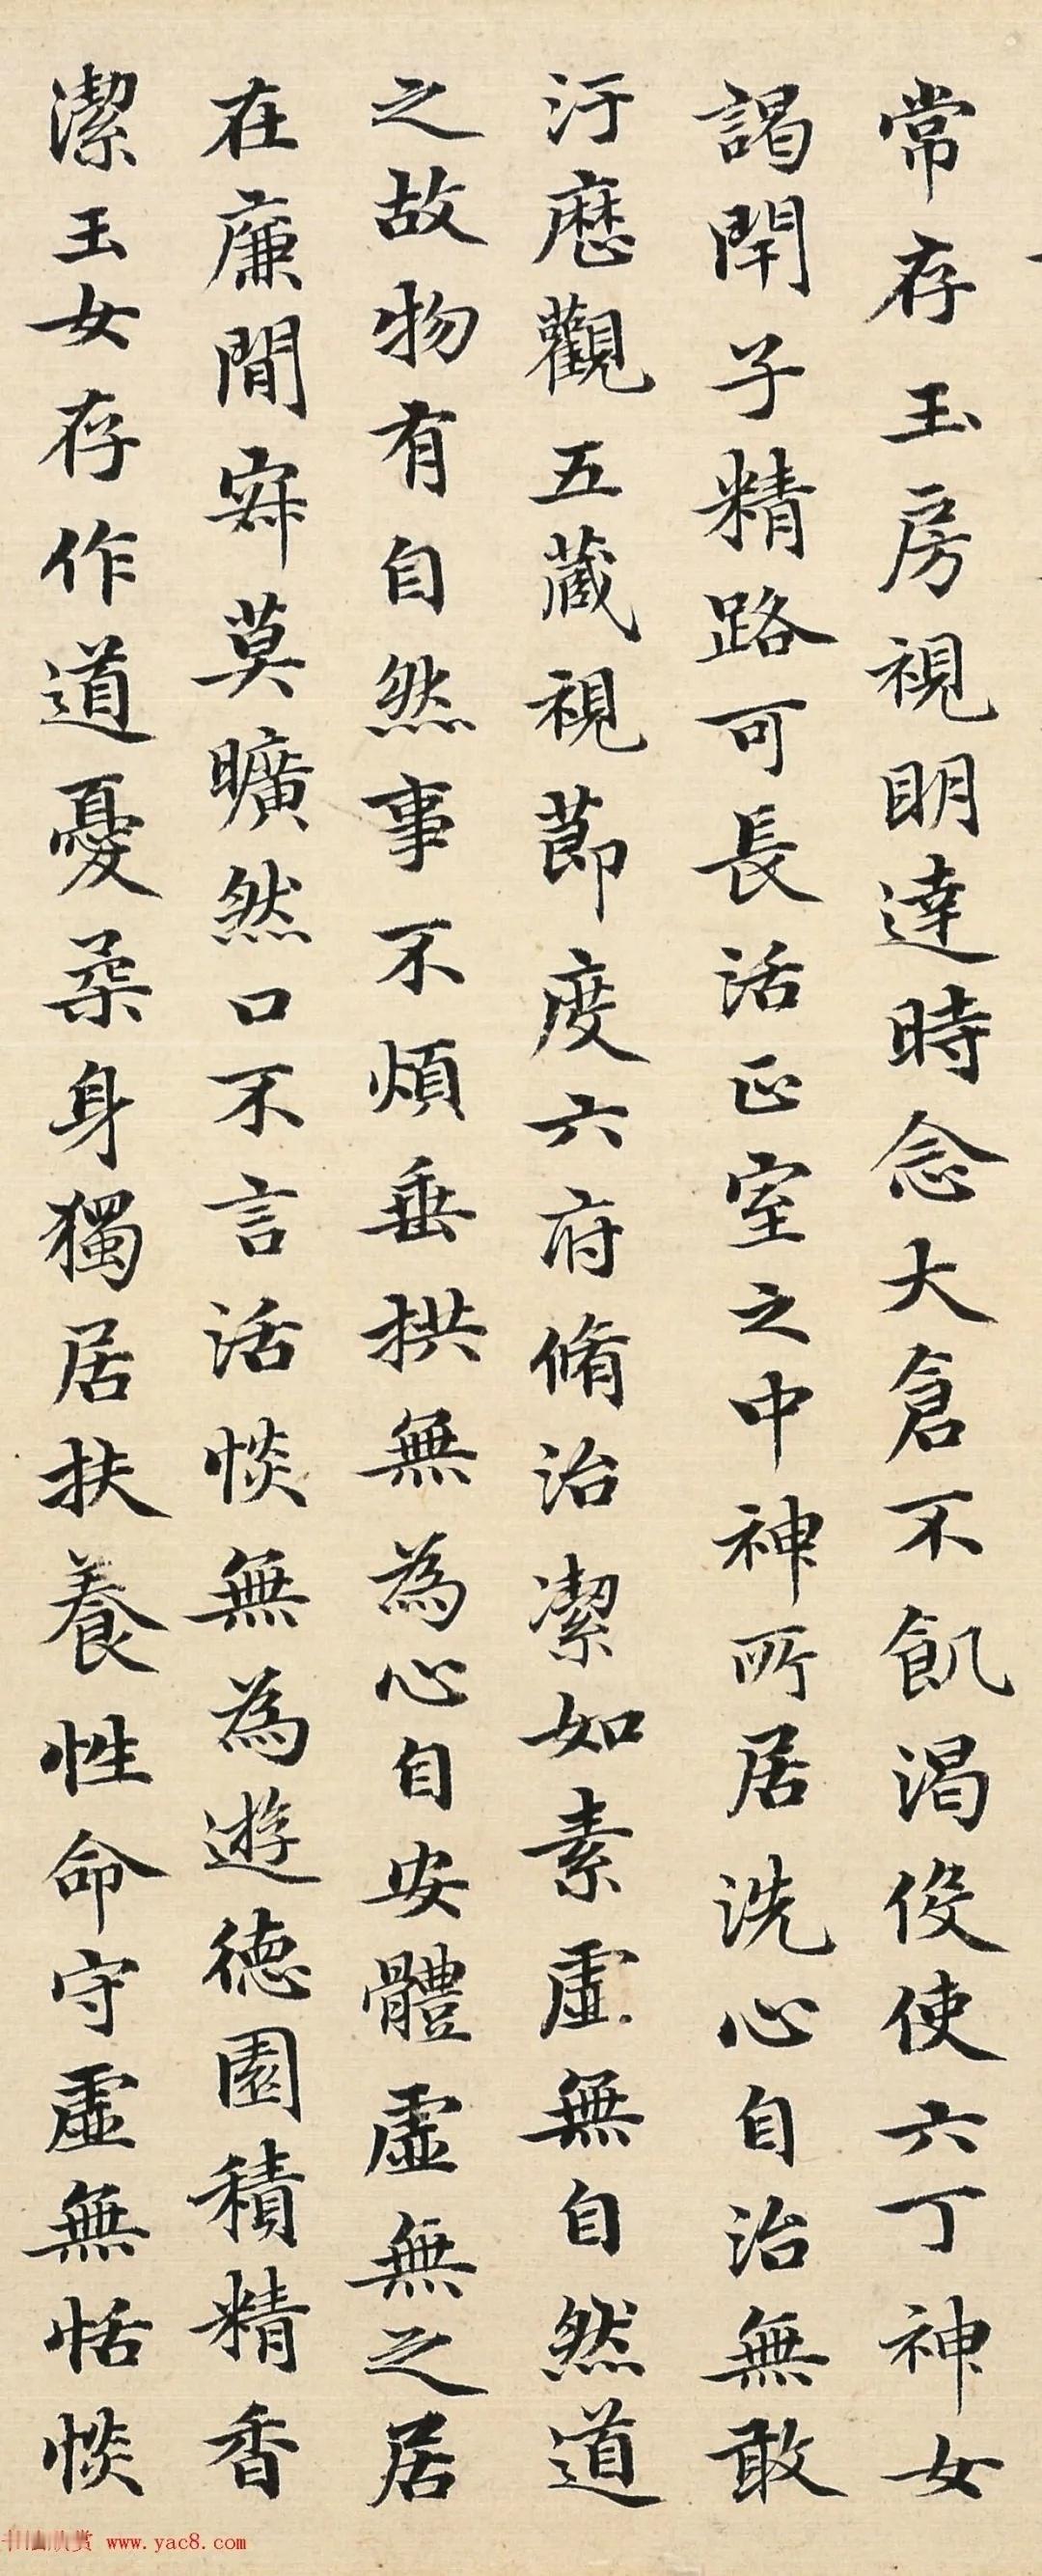 常存玉房視明達時念大倉不飢渴伇使六丁神女
謁閇子精路可長活正室之中神所居洗心自治無敢
汙歷觀五藏視節度六府脩治潔如素虛無自然道
之故物有自然事不煩垂拱無為心自安體虛無之居
在廉間寂莫曠然口不言活惔無為遊德園積精香
潔玉女存作道憂柔身獨居扶養性命守虛無恬惔
书法欣赏 www.yac8.com